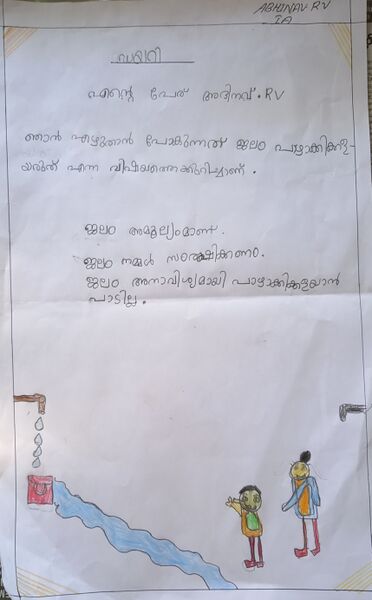 ABHINAV RV
IA
ഡയറി
എന്റെ പേര് അഭിനവ്.RV
ഞാൻ എഴുതാൻ പോകുന്നത് ജലം പാഴാക്കിക്കള-
യരുത് എന്ന വിഷയത്തെക്കുറിച്ചാണ്.
ജലം അമൂല്യമാണ്.
ജലം നമ്മൾ സംരക്ഷിക്കണം.
ജലം അനാവിശ്യമായി പാഴാക്കിക്കളയാൻ
പാടില്ല.